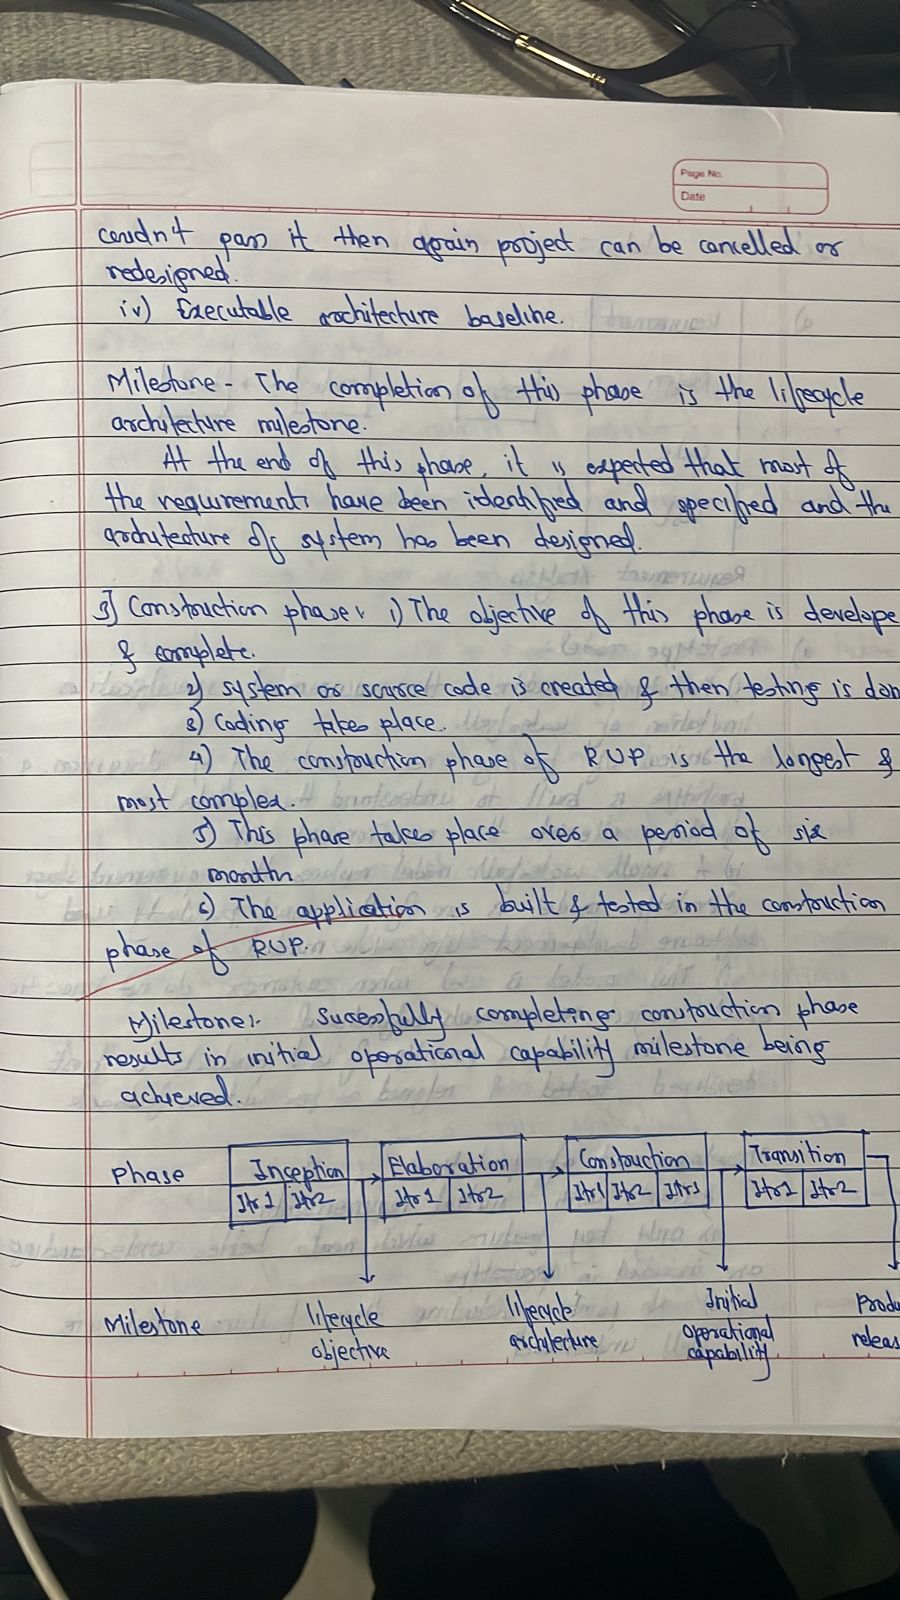 Page No.
Date
coudn't pass it then again project can be cancelled or
redesigned.
iv) Executable architecture baseline.
Milestone - The completion of this phase is the lifecycle
architecture milestone.
At the end of this phase, it is expected that most of
the requirements have been identified and specified and the
architecture of system has been designed.
3] Construction phase: 1) The objective of this phase is develope
& complete.
2) System or source code is created & then testing is don
3) Coding takes place.
4) The construction phase of RUP is the longest &
most complex.
5) This phase takes place over a period of six
month
6) The application is built & tested in the construction
phase of RUP.
Milestone:- Sucessfully completeing construction phase
results in initial operational capability milestone being
achieved.
Phase Inception Elaboration Construction Transition
Itr1 Itr2 Itr1 Itr2 Itr1 Itr2 Itr3 Itr1 Itr2
Milestone lifecycle lifecycle Initial Produ
objective architecture operational releas
capability